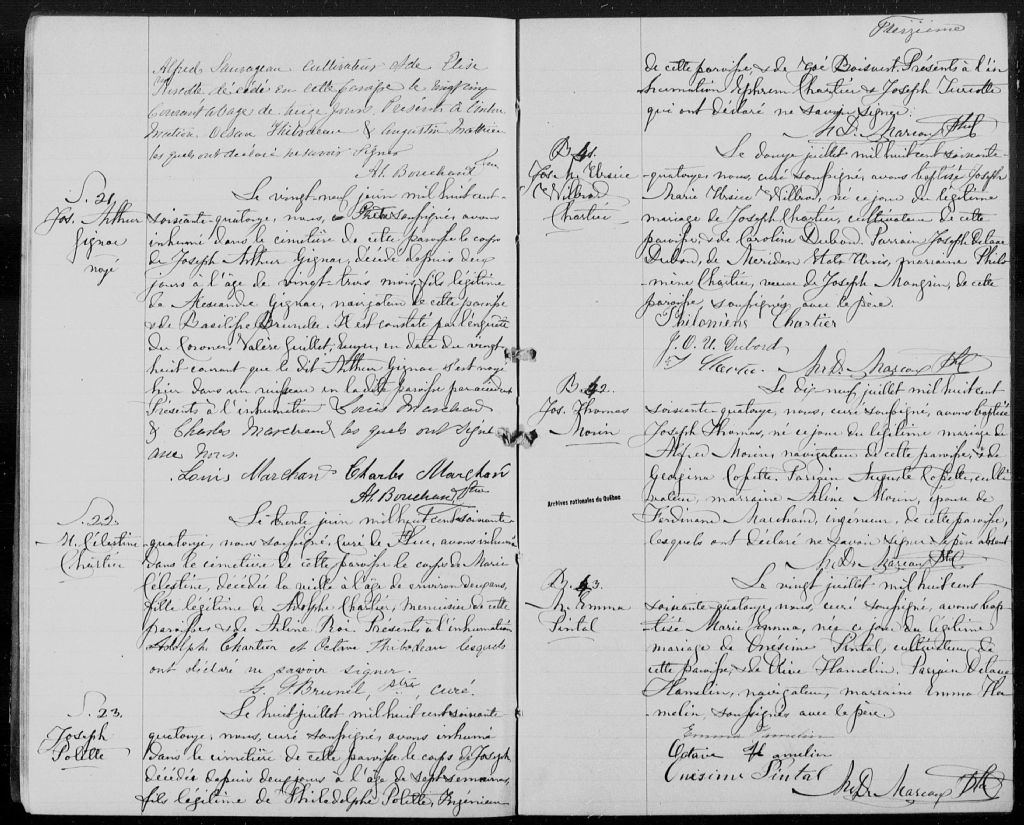 Alfred Sauvageau cultivateur & de Elise
décédé en cette Paroisse le vingt cinq
courant à l'age de jours. Présents à l'inhu
mation Octave Thibodeau & Augustin Mathieu
les quels ont déclaré ne savoir signer
At. Bouchard ptre
S. 21.
Jos. Arthur
Gignac
noyé
Le vingt neuf juin mil huit cent-
soixante-quatorze, nous, Ptre soussigné, avons
inhumé dans le cimetière de cette paroisse le corps
de Joseph Arthur Gignac, décédé depuis deux
jours à l'âge de vingt-trois mois, fils légitime
de Alexandre Gignac, navigateur de cette paroisse
& de Basilisse Brunelle. Il est constaté par l'enquête
du Coroner Valère Guillet, Ecuyer, en date du vingt
huit courant que le dit Arthur Gignac s'est noyé
hier dans un ruisseau en la dite paroisse par accident
Présents à l'inhumation Louis Marchand
& Charles Marchand les quels ont signé
avec nous.
Louis Marchan Charles Marchan
At. Bouchard ptre
S. 22.
M. Célestine
Chartier
Le trente juin mil huit cent soixante-
quatorze, nous soussigné, Curé de avons inhumé
dans le cimetière de cette paroisse le corps de Marie
Célestine, décédée la veille à l'âge de environ deux ans,
fille légitime de Adolphe Chartier, menuisier de cette
paroisse & de Aline Roi. Présents à l'inhumation
Adolphe Chartier et Octave Thibodeau lesquels
ont déclaré ne savoir signer.
Brunel, ptre, curé.
S. 23.
Joseph
Polette
Le huit juillet mil huit cent soixante
quatorze, nous, curé soussigné, avons inhumé
dans le cimetière de cette paroisse le corps de Joseph,
décédé depuis deux jours à l'âge de sept semaines,
fils légitime de Philadelphe Polette, Ingénieur
Treizième
de cette paroisse, & de Zoé Boisvert. Présents à l'in
humation Ephrem Chartier & Joseph Turcotte
qui ont déclaré ne savoir signer.
M. D. Marcoux Ptre
B. 41.
Jos. M. Ursice
Wilbrod
Chartier
Le douze juillet mil huit cent soixante-
quatorze, nous, curé soussigné, avons baptisé Joseph
Marie Ursice Willbrod, né ce jour du légitime
mariage de Joseph Chartier, cultivateur de cette
paroisse, & de Caroline Dubord. Parrain Joseph Octave
Dubord, de Meriden Etats Unis, marraine Philo-
mène Chartier, veuve de Joseph Mongrain, de cette
paroisse, soussignés avec le père.
Philoniens Chartier
J. O. U. Dubord
M. D. Marcoux Ptre
B. 42.
Jos. Thomas
Morin
Le dix neuf juillet mil huit cent
soixante quatorze, nous, curé soussigné, avons baptisé
Joseph Thomas, né ce jour du légitime mariage de
Alfred Morin, navigateur de cette paroisse, & de
Georgina Copette. Parrain Auguste Copette, culti
vateur, marraine Aline Morin, épouse de
Ferdinand Marchand, ingénieur, de cette paroisse,
lesquels ont déclaré ne savoir signer le père absent
M. D. Marcoux Ptre
Archives nationales du Québec
B. 43.
M. Emma
Pintal
Le vingt juillet mil huit cent
soixante quatorze, nous, curé soussigné, avons bap
tisé Marie Emma, née ce jour du légitime
mariage de Onésime Pintal, cultivateur de
cette paroisse, & de Elise Hamelin. Parrain Octave
Hamelin, navigateur, marraine Emma Ha
melin, soussignés avec le père
Emma
Octave Hamelin
Onésime Pintal
M. D. Marcoux Ptre